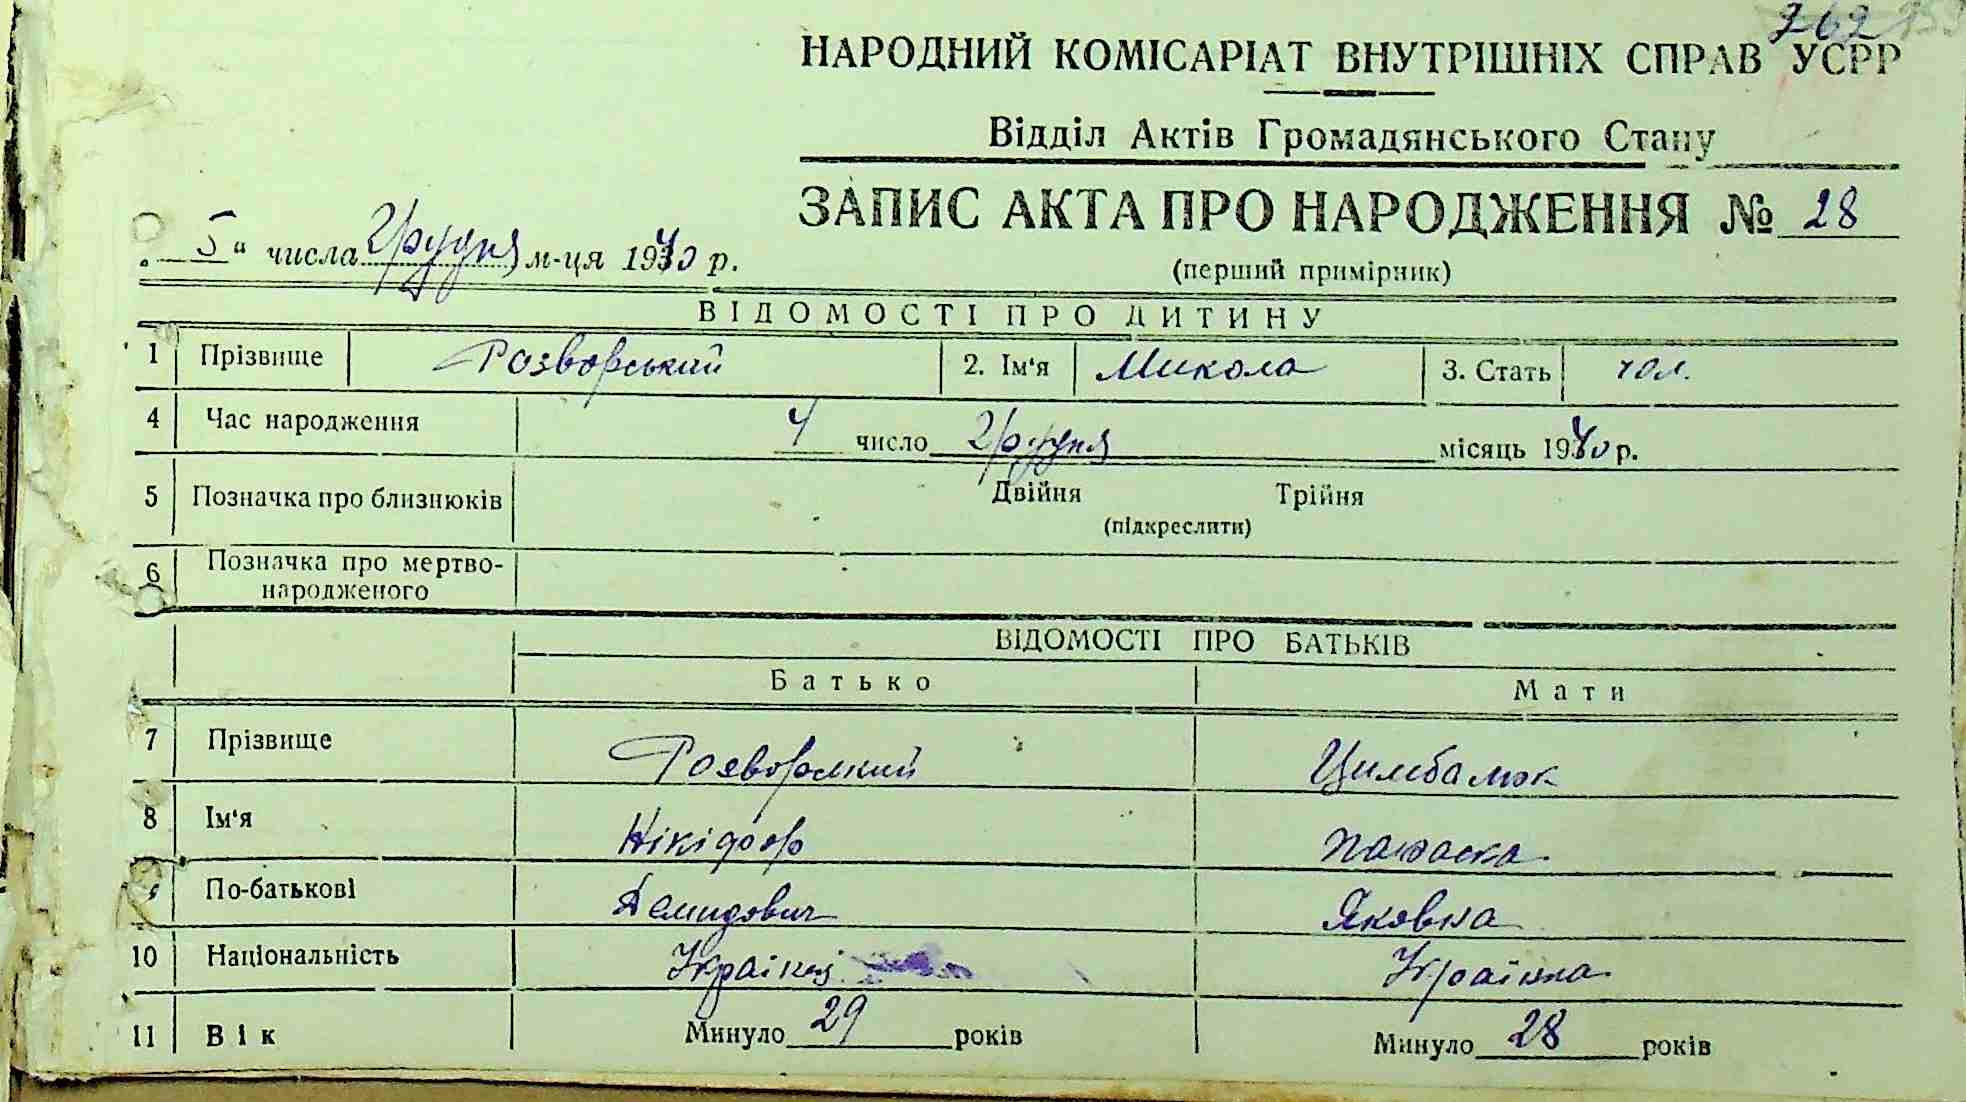 262
НАРОДНИЙ КОМІСАРІАТ ВНУТРІШНІХ СПРАВ УСРР
Відділ Актів Громадянського Стану
ЗАПИС АКТА ПРО НАРОДЖЕННЯ № 28
„ 5 “ числа грудня м-ця 1940 р.
(перший примірник)
ВІДОМОСТІ ПРО ДИТИНУ
1 Прізвище Розворський 2. Ім'я Микола 3. Стать чол.
4 Час народження 4 число грудня місяць 1940 р.
5 Позначка про близнюків Двійня Трійня
(підкреслити)
6 Позначка про мертво-
народженого
ВІДОМОСТІ ПРО БАТЬКІВ
Батько Мати
7 Прізвище Розворский Цимбалюк
8 Ім'я Нікіфор Параска
9 По-батькові Демидович Яковна
10 Національність Українец Українка
11 Вік Минуло 29 років Минуло 28 років